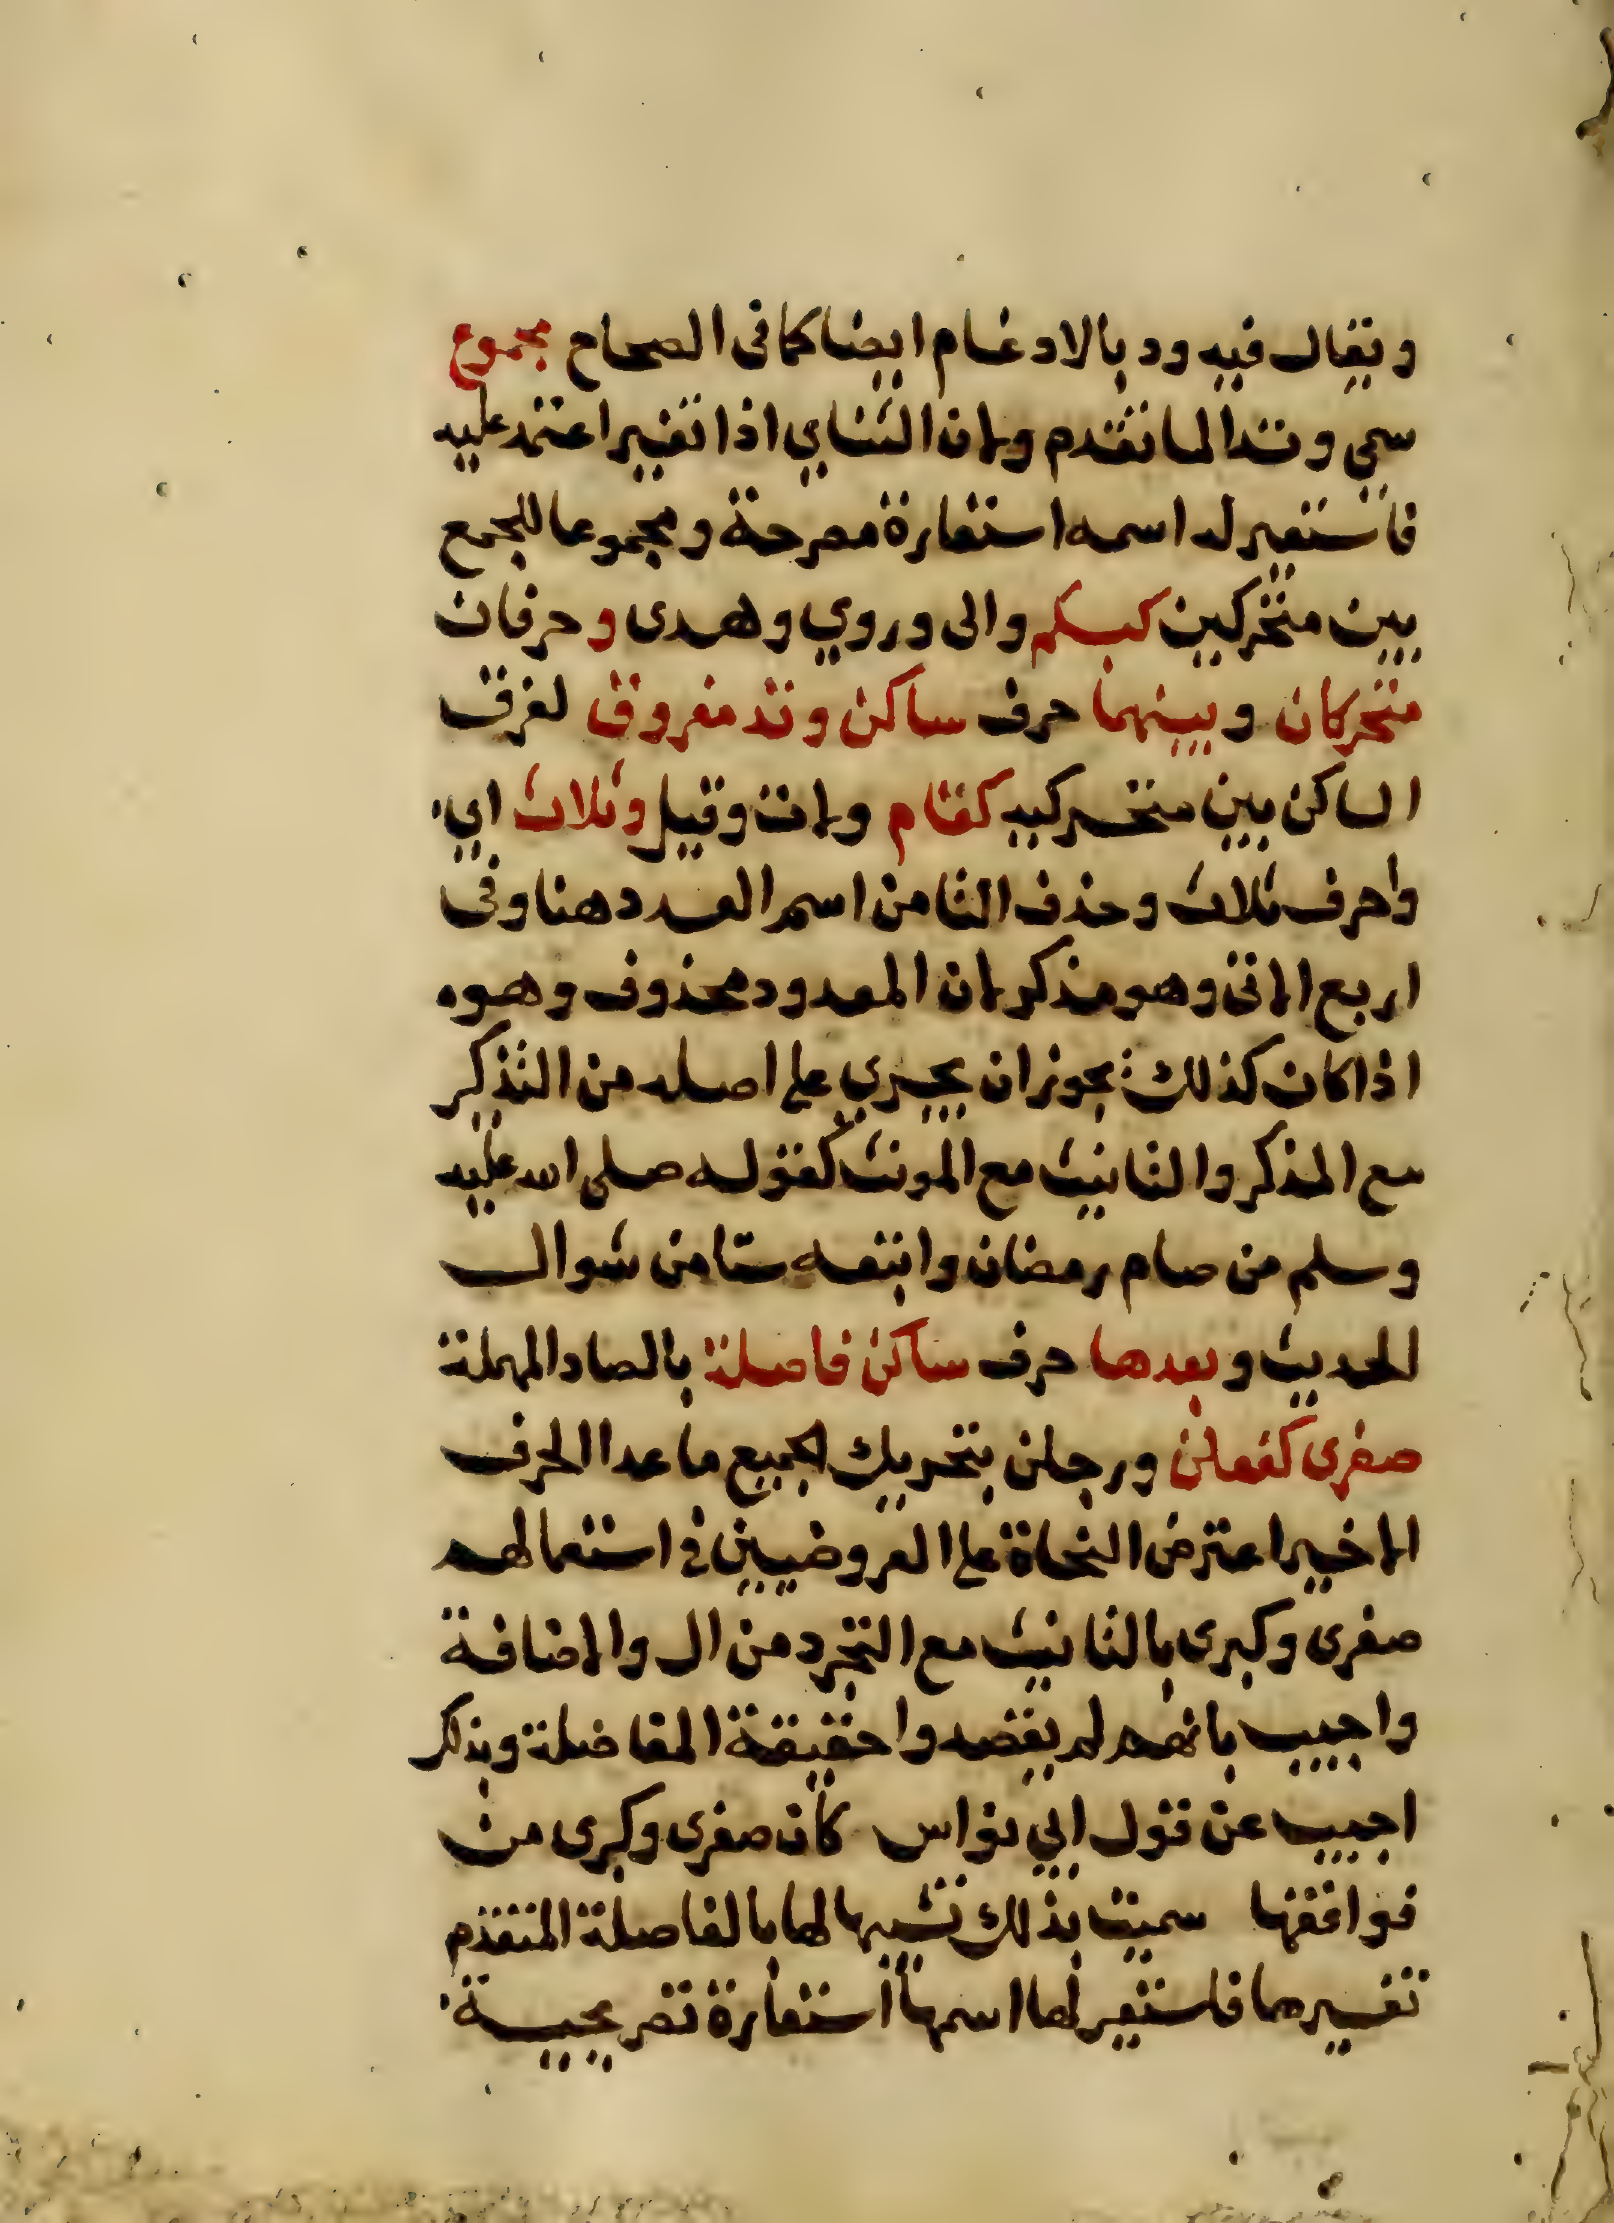 ويقال فيه ود بالادغام ايضا كما فى الصحاح مجموع
سمي وتدا لما تقدم ولان الثناي اذا تغير اعتمد عليه
فاستعير له اسمه استعارة مصرحة ومجموعا للجمع
بين متحركين كبكم والى وروي وهدى و حرفان
متحركان وبينهما حرف ساكن وتد مفروق لفرق
الساكن بين متحركيه كقام ولات وقيل وثلاث اي
واحرف ثلاث وحذف التا من اسم العدد هنا وفى
اربع الاتى وهو مذكر لان المعدود محذوف وهو
اذا كان كذلك يجوز ان يجري على اصله من التذكير
مع المذكر والتانيث مع المونث كقوله صلى الله عليه
وسلم من صام رمضان واتبعه ستا من شوال
الحديث وبعدها حرف ساكن فاصلة بالصاد المهملة
صغرى كفعلن ورجلن بتحريك الجميع ما عدا الحرف
الاخير اعترض النحاة على العروضيين في استعمالهم
صغرى وكبرى بالتانيث مع التجرد من ال والاضافة
واجيب بانهم لم يقصدوا حقيقة المفاضلة وبذلك
اجيب عن قول ابي نواس كان صغرى وكبرى من
فواقعها سميت بذلك تشبيها لها بالفاصلة المتقدم
تفسيرها فاستعير لها اسمها استعارة تصريحية